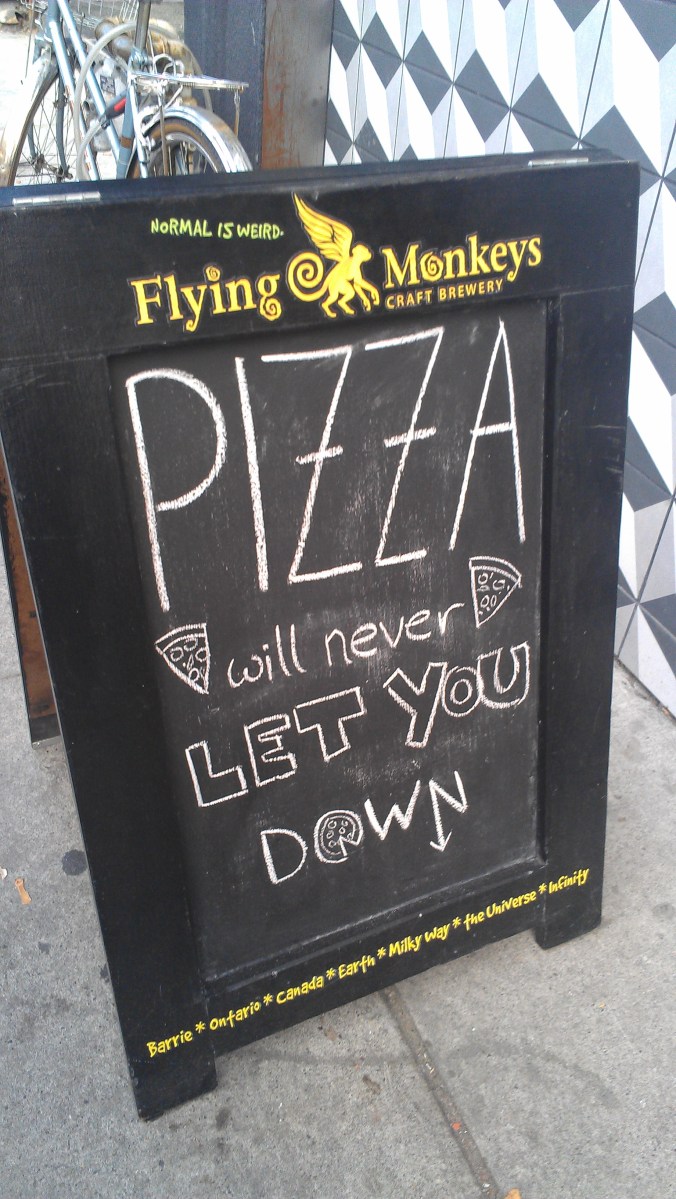 NORMAL IS WEIRD.
Flying Monkeys
CRAFT BREWERY
PIZZA
will never
LET YOU
DOWN
Barrie * Ontario * Canada * Earth * Milky Way * the Universe * Infinity